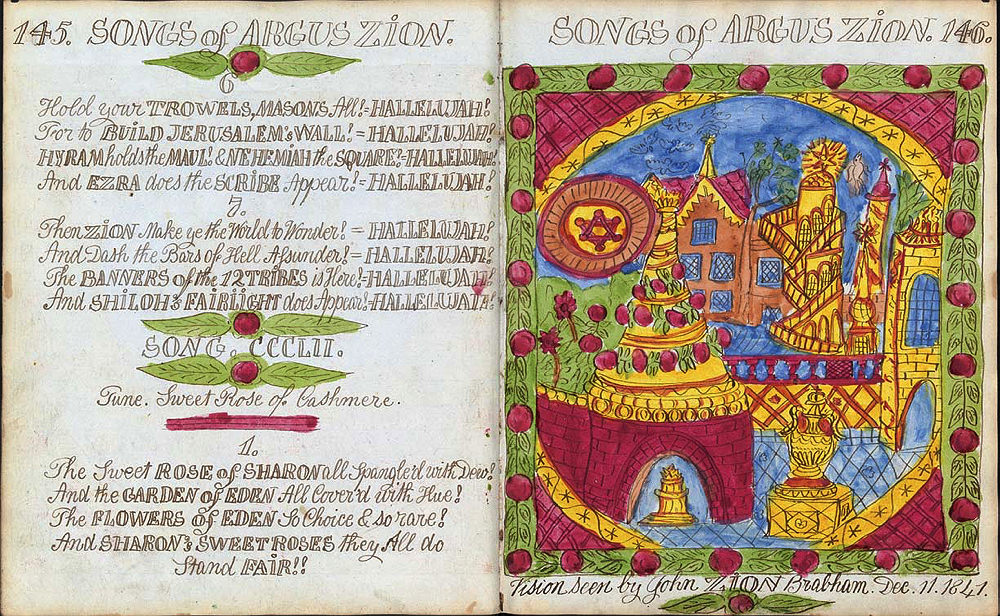 145. SONGS of ARGUS ZION.
6
Hold your TROWELS, MASONS All! = HALLELUJAH!
For to BUILD JERUSALEM's WALL! = HALLELUJAH!
HYRAM holds the MAUL! & NEHEMIAH the SQUARE! = HALLELUJAH!
And EZRA does the SCRIBE Appear! = HALLELUJAH!
7.
Then ZION Make ye the World to Wonder! = HALLELUJAH!
And Dash the Bars of Hell Assunder! = HALLELUJAH!
The BANNERS of the 12 TRIBES is Here! = HALLELUJAH!
And SHILOH's FAIR LIGHT does Appear! = HALLELUJAH!
SONG. CCCLII.
Tune. Sweet Rose of Cashmere.
1.
The Sweet ROSE of SHARON all Spangle'd with Dew!
And the GARDEN of EDEN All Cover'd with Hue!
The FLOWERS of EDEN So Choice & so rare!
And SHARON's SWEET ROSES they All do
Stand FAIR!!
SONGS of ARGUS ZION. 146.
Vision seen by John ZION Brabham. Dec. 11. 1841.